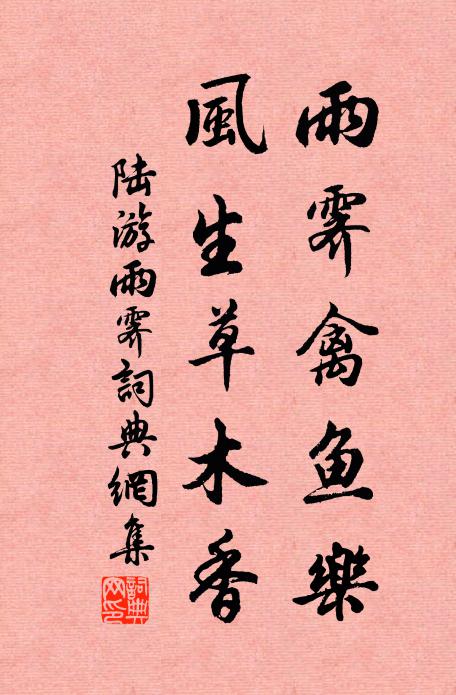 雨霽禽鱼樂
風生草木香
陆游雨霽詞典網集
詞典网印